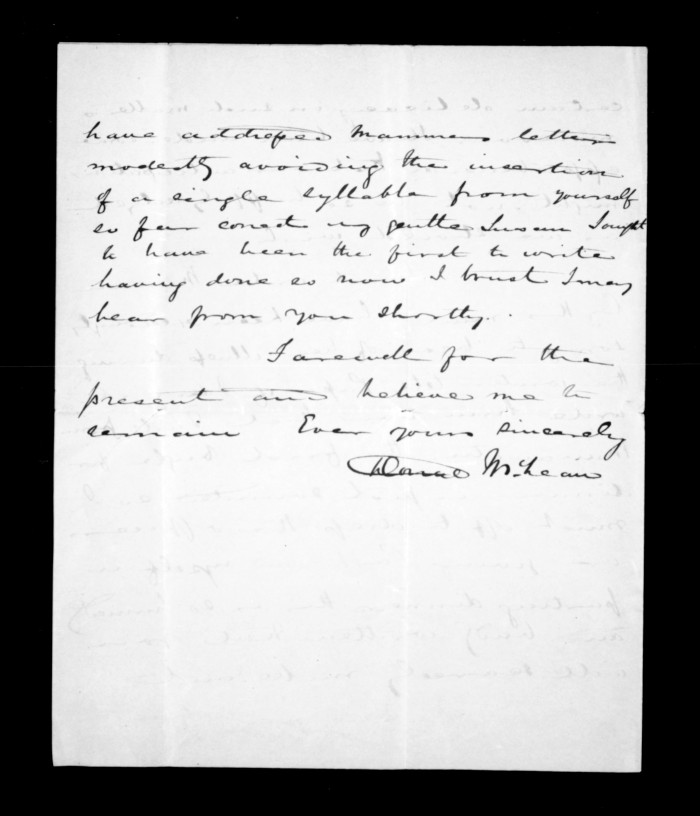 have addressed Mammas letter
modestly avoiding the insertion
of a single syllable from yourself
so far correct my gentle Susan I ought
to have been the first to write
having done so now I trust I may
hear from you shortly.
Farewell for the
present and believe me to
remain Ever yours sincerely
Donald McLean